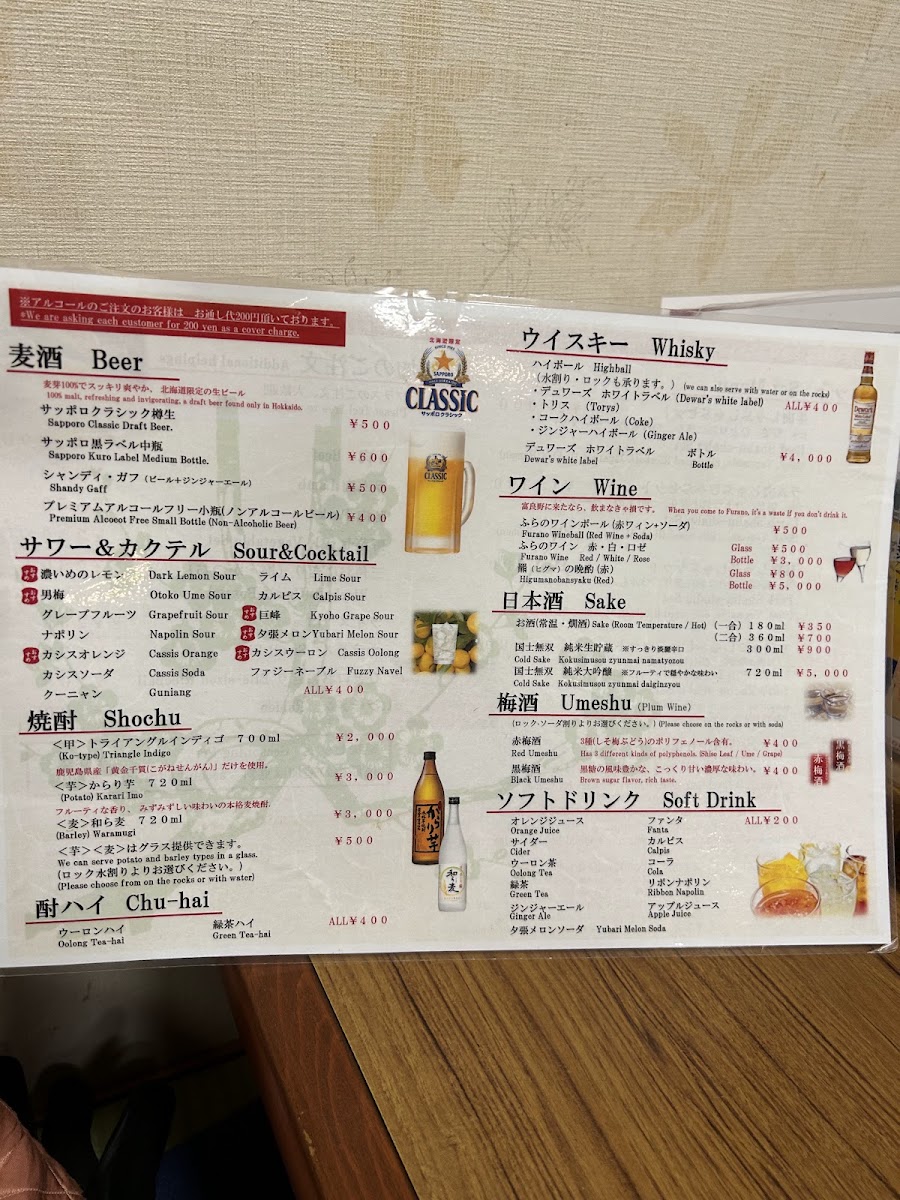 ※アルコールのご注文のお客様は お通し代200円頂いております。
*We are asking each customer for 200 yen as a cover charge.
麦酒 Beer
麦芽100%でスッキリ爽やか、北海道限定の生ビール
100% malt, refreshing and invigorating, a draft beer found only in Hokkaido.
サッポロクラシック樽生
Sapporo Classic Draft Beer. ￥500
サッポロ黒ラベル中瓶
Sapporo Kuro Label Medium Bottle. ￥600
シャンディ・ガフ（ビール＋ジンジャーエール）
Shandy Gaff ￥500
プレミアムアルコールフリー小瓶(ノンアルコールビール) ￥400
Premium Alcoeot Free Small Bottle (Non-Alcoholic Beer)
サワー＆カクテル Sour&Cocktail
おすすめ 濃いめのレモン Dark Lemon Sour ライム Lime Sour
おすすめ 男梅 Otoko Ume Sour カルピス Calpis Sour
グレープフルーツ Grapefruit Sour おすすめ 巨峰 Kyoho Grape Sour
ナポリン Napolin Sour おすすめ 夕張メロン Yubari Melon Sour
おすすめ カシスオレンジ Cassis Orange おすすめ カシスウーロン Cassis Oolong
カシスソーダ Cassis Soda ファジーネーブル Fuzzy Navel
クーニャン Guniang ALL￥400
焼酎 Shochu
＜甲＞トライアングルインディゴ 700ml ￥2,000
(Ko-type) Triangle Indigo
鹿児島県産「黄金千貫(こがねせんがん)」だけを使用。
＜芋＞からり芋 720ml ￥3,000
(Potato) Karari Imo
フルーティな香り、みずみずしい味わいの本格麦焼酎
＜麦＞和ら麦 720ml ￥3,000
(Barley) Waramugi
＜芋＞＜麦＞はグラス提供できます。 ￥500
We can serve potato and barley types in a glass.
(ロック水割りよりお選びください。)
(Please choose from on the rocks or with water)
酎ハイ Chu-hai
ウーロンハイ 緑茶ハイ ALL￥400
Oolong Tea-hai Green Tea-hai
北海道限定
SINCE 1985
SAPPORO
CLASSIC
サッポロクラシック
CLASSIC
からり芋
和ら麦
ウイスキー Whisky
ハイボール Highball
（水割り・ロックも承ります。）(we can also serve with water or on the rocks)
・デュワーズ ホワイトラベル (Dewar's white label) ALL￥400
・トリス (Torys)
・コークハイボール (Coke)
・ジンジャーハイボール (Ginger Ale)
デュワーズ ホワイトラベル ボトル ￥4,000
Dewar's white label Bottle
Dewar's
ワイン Wine
富良野に来たなら、飲まなきゃ損です。 When you come to Furano, it's a waste if you don't drink it.
ふらのワインボール (赤ワィン+ソーダ) ￥500
Furano Wineball (Red Wine + Soda)
ふらのワイン 赤・白・ロゼ Glass ￥500
Furano Wine Red / White / Rose Bottle ￥3,000
熊（ヒグマ）の晩酌（赤） Glass ￥800
Higumanobansyaku (Red) Bottle ￥5,000
日本酒 Sake
お酒(常温・燗酒) Sake (Room Temperature / Hot) (一合) 180ml ￥350
(二合) 360ml ￥700
国士無双 純米生貯蔵 ※すっきり淡麗辛口 300ml ￥900
Cold Sake Kokusimusou zyunmai namatyozou
国士無双 純米大吟醸 ※フルーティで穏やかな味わい 720ml ￥5,000
Cold Sake Kokusimusou zyunmai daiginzyou
梅酒 Umeshu (Plum Wine)
(ロック・ソーダ割りよりお選びください。) (Please choose on the rocks or with soda)
赤梅酒 3種(しそ梅ぶどう)のポリフェノール含有。 ￥400
Red Umeshu Has 3 different kinds of polyphenols. Shiso Leaf / Ume / Grape)
黒梅酒 黒糖の風味豊かな、こっくり甘い濃厚な味わい。￥400
Black Umeshu Brown sugar flavor, rich taste.
黒梅酒
赤梅酒
ソフトドリンク Soft Drink
オレンジジュース ファンタ ALL￥200
Orange Juice Fanta
サイダー カルピス
Cider Calpis
ウーロン茶 コーラ
Oolong Tea Cola
緑茶 リボンナポリン
Green Tea Ribbon Napolin
ジンジャーエール アップルジュース
Ginger Ale Apple Juice
夕張メロンソーダ Yubari Melon Soda